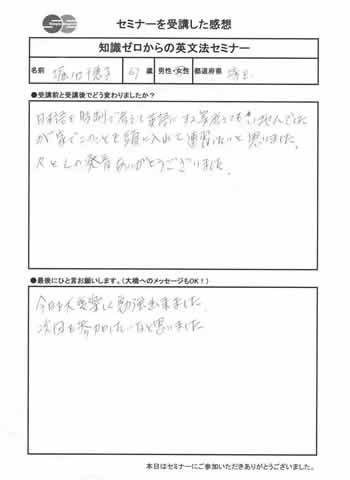 セミナーを受講した感想
知識ゼロからの英文法セミナー
名前 堀内 子 67 歳 男性・女性 都道府県 埼玉
●受講前と受講後でどう変わりましたか？
日本語を時制で考えて英語にする等考えてもいませんでした
が家でこのことを頭に入れて連習したいと思いました。
RとLの発音ありがとうございました。
●最後にひと言お願いします。（大橋へのメッセージもOK！）
今日も大変楽しく勉強出来ました。
次回も参加したいなと思いました
本日はセミナーにご参加いただきありがとうございました。